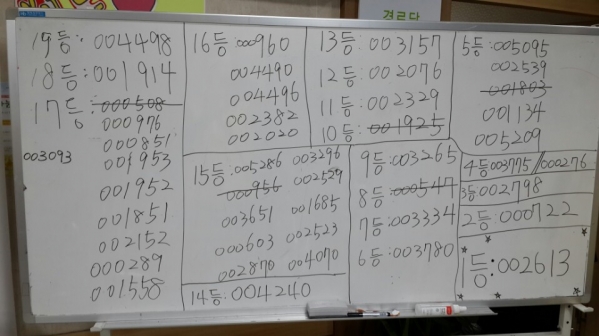 경로당
19등: 004498
18등: 001914
17등: 000508
000976
000851
003093
001953
001952
001851
002152
000289
001558
16등: 000960
004490
004496
002382
002020
15등: 005286 003296
000956 002529
003651 001685
000603 002523
002870 004070
14등: 004240
13등: 003157
12등: 002076
11등: 002329
10등: 001925
9등: 003265
8등: 000547
7등: 003334
6등: 003780
5등: 005095
002539
001803
001134
005209
4등 003775 // 000276
3등 002798
2등: 000722
1등: 002613